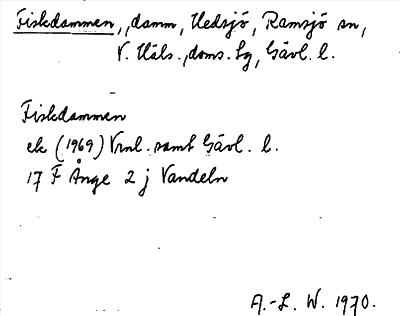 Fiskdammen, damm, Hedsjö, Ramsjö sn,
V. Häls. doms. sg, Gävl. l.
Fiskdammen
ek (1969) Vrnl. samt Gävl. l.
17 F Ånge 2 j Vandeln
A.-L. W. 1970.